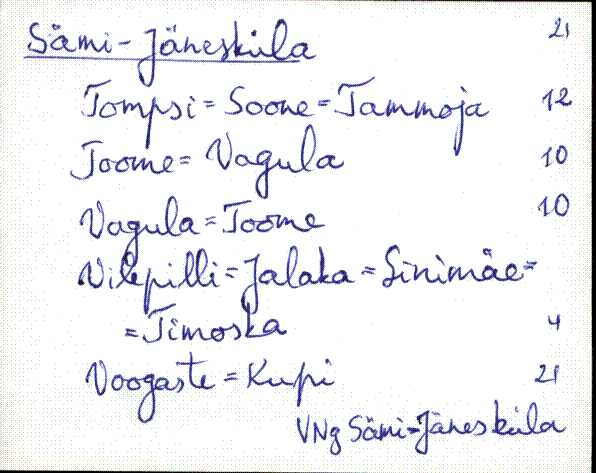 Sämi-Jänesküla 21
Tompsi = Soone = Tammoja 12
Toome = Vagula 10
Vagula = Toome 10
Vilepilli = Jalaka = Sinimäe =
= Timoska 4
Voogaste = Kupi 21
VNg Sämi-Jänesküla